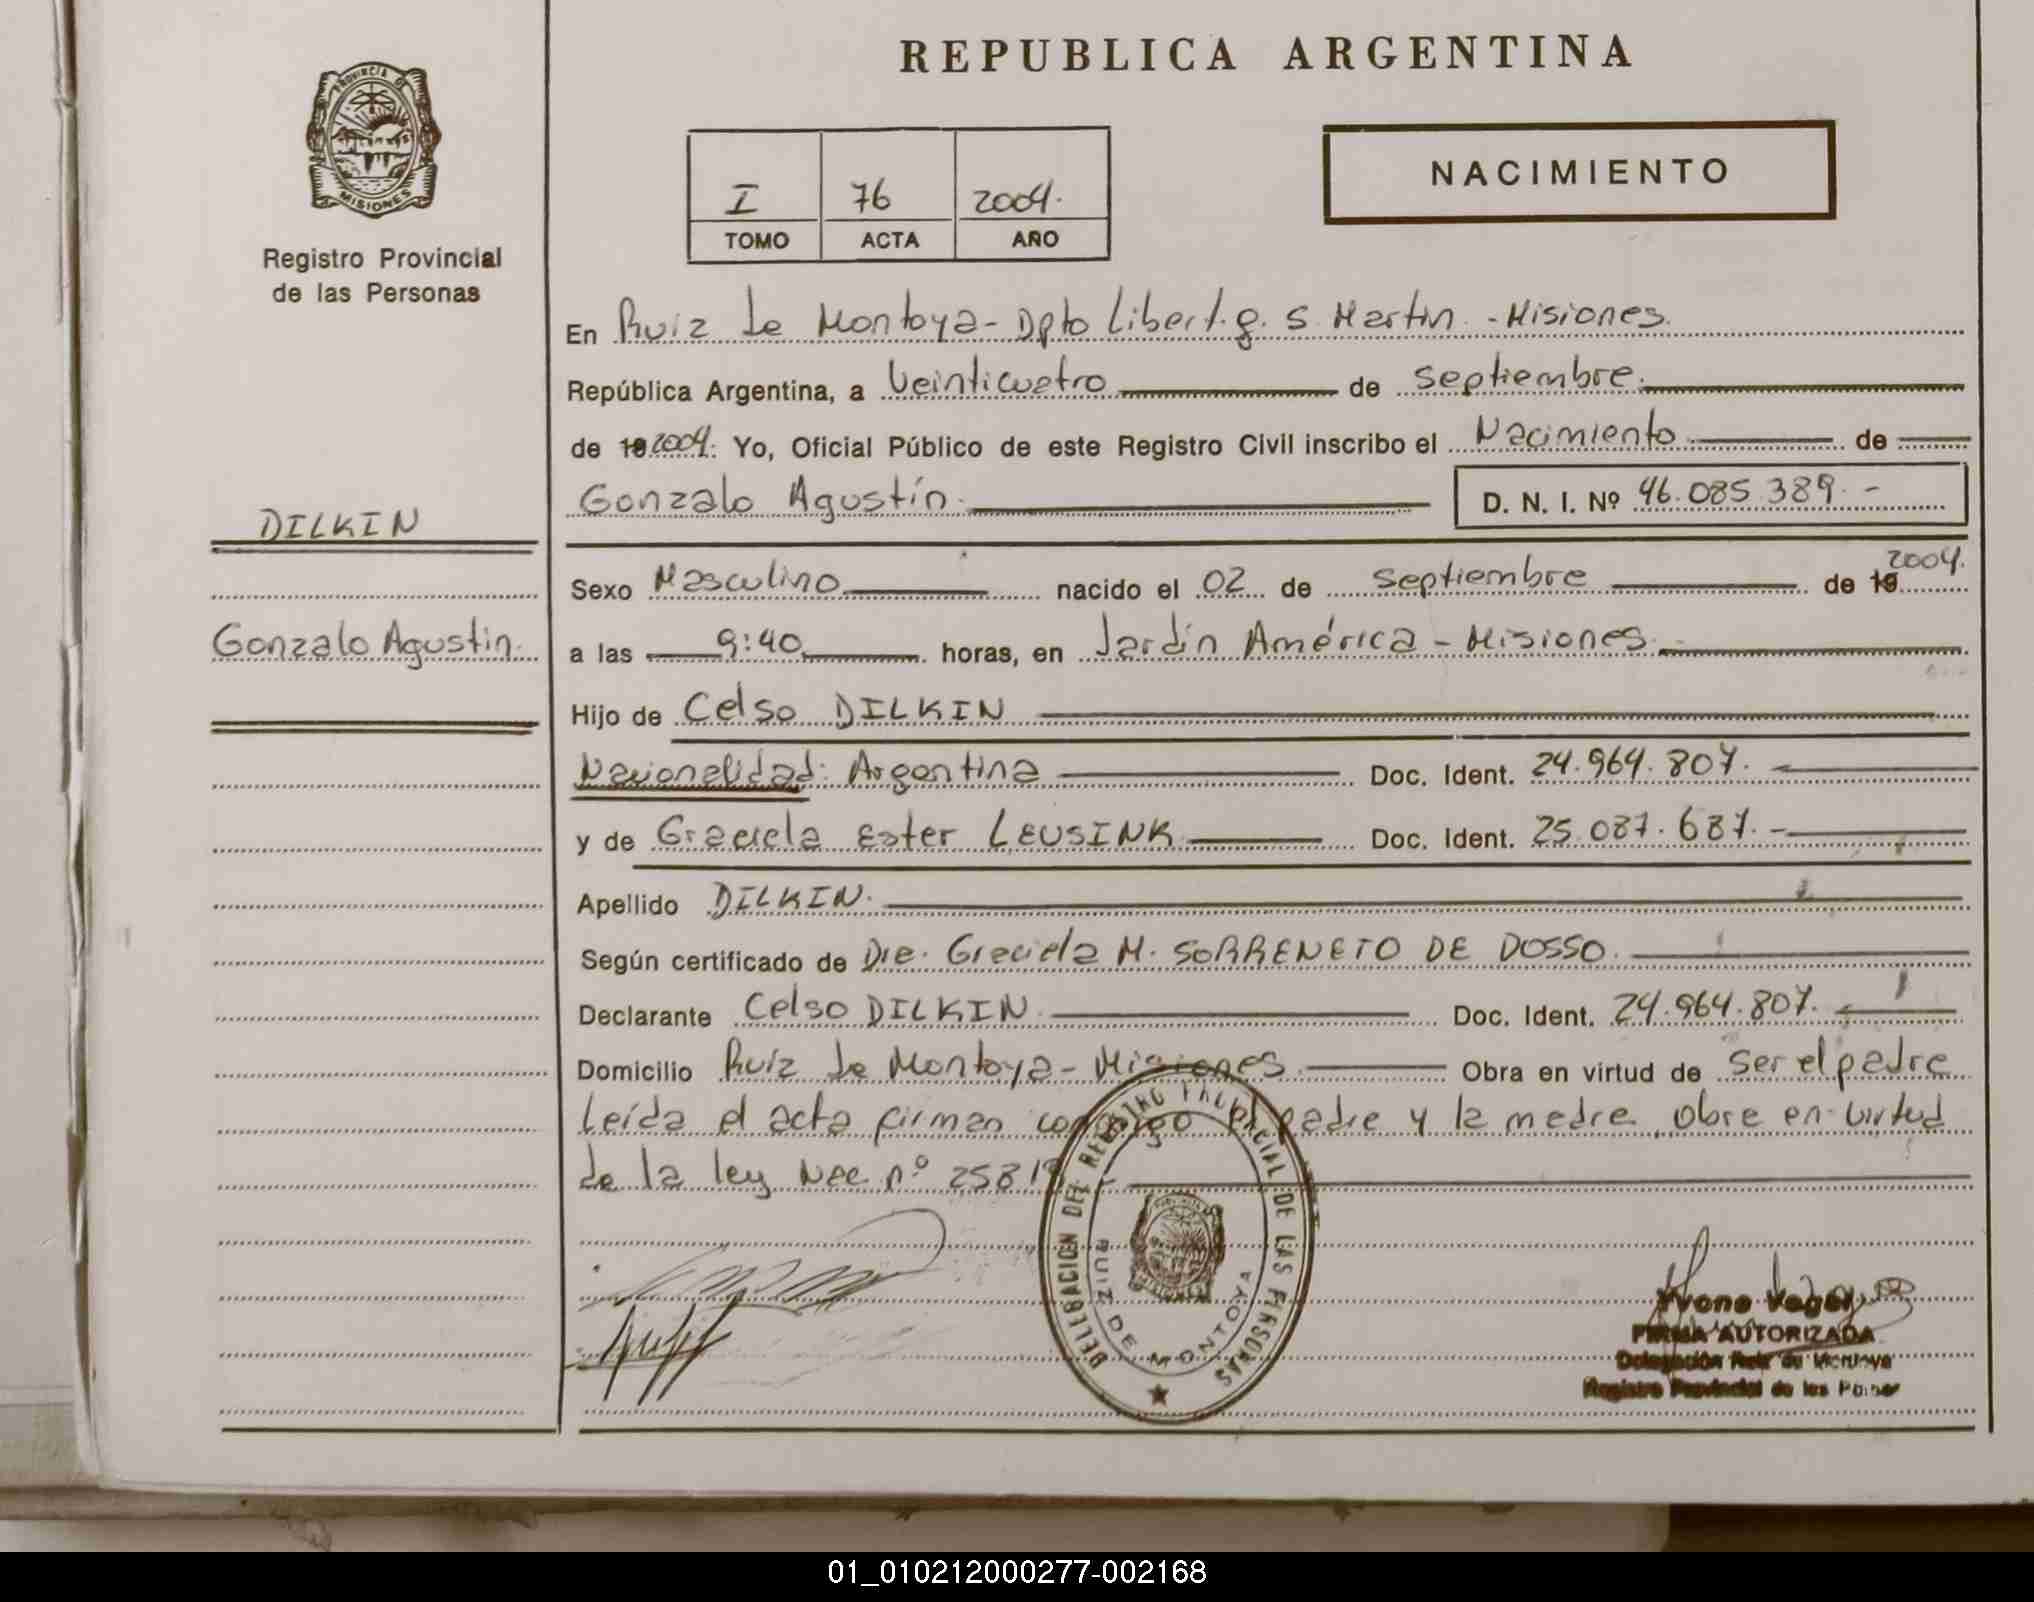 REPUBLICA ARGENTINA
PROVINCIA DE
MISIONES
Registro Provincial
de las Personas
NACIMIENTO
I 76 2004.
TOMO ACTA AÑO
En Ruiz de Montoya - Dpto Libert. g. S. Martín. - Misiones.
República Argentina, a Veinticuatro de septiembre.
de 19 2004. Yo, Oficial Público de este Registro Civil inscribo el Nacimiento de
Gonzalo Agustín. D. N. I. Nº 46.085.389.-
DILKIN
Sexo Masculino nacido el 02 de septiembre de 19 2004.
Gonzalo Agustin.
a las 9:40 horas, en Jardín América - Misiones.
Hijo de Celso DILKIN
Nacionalidad: Argentina Doc. Ident. 24.964.807.
y de Graciela Ester LEUSINK Doc. Ident. 25.087.687.-
Apellido DILKIN.
Según certificado de Dra. Graciela M. SORRENETO DE DOSSO.
Declarante Celso DILKIN Doc. Ident. 24.964.807.
Domicilio Ruíz de Montoya - Misiones. Obra en virtud de ser el padre
Leída el acta firman conmigo el padre y la madre, obra en virtud
de la ley Nac. nº 25819
DELEGACION DEL REGISTRO PROVINCIAL DE LAS PERSONAS
RUIZ DE MONTOYA
Yvone Vogel
FIRMA AUTORIZADA
Delegación Ruiz de Montoya
Registro Provincial de las Personas
01_010212000277-002168